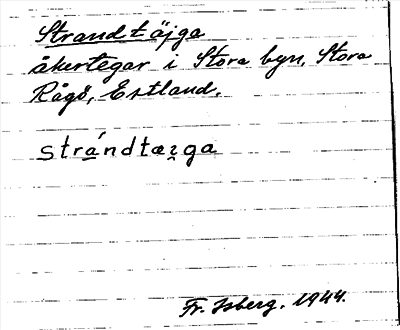 Strandtäjga
åkertegar i Stora byn, Stora
Rågö, Estland.
strándtæꞮga
Fr. Isberg. 1944.